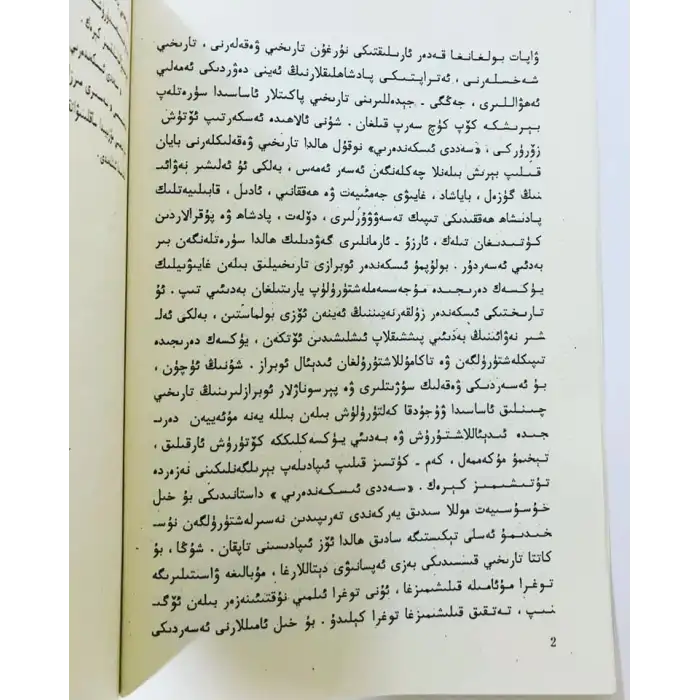 ۋاپات بولغانغا قەدەر ئارىلىقتىكى نۇرغۇن تارىخىي ۋەقەلەرنى ، تارىخىي
شەخسلەرنى ، ئەتراپتىكى پادىشاھلىقلارنىڭ ئەينى دەۋردىكى ئەمەلىي
ئەھۋاللىرى ، جەڭگى ـ جېدەللىرىنى تارىخىي پاكىتلار ئاساسىدا سۈرەتلەپ
بېرىشكە كۆپ كۈچ سەرپ قىلغان . شۇنى ئالاھىدە ئەسكەرتىپ ئۆتۈش
زۆرۈركى ، «سەددى ئىسكەندەرىي» نوقۇل ھالدا تارىخىي ۋەقەلىكلەرنى بايان
قىلىپ بېرىش بىلەنلا چەكلەنگەن ئەسەر ئەمەس ، بەلكى ئۇ ئەلىشىر نەۋائىـ
نىڭ گۈزەل ، باياشاد ، غايىۋى جەمئىيەت ۋە ھەققانىي ، ئادىل ، قابىلىيەتلىك
پادىشاھ ھەققىدىكى تىپىك تەسەۋۋۇرلىرى ، دۆلەت ، پادىشاھ ۋە پۇقرالاردىن
كۈتىدىغان تىلەك ، ئارزۇ ـ ئارمانلىرى گەۋدىلىك ھالدا سۈرەتلەنگەن بىر
بەدىئىي ئەسەردۇر . بولۇپمۇ ئىسكەندەر ئوبرازى تارىخىيلىق بىلەن غايىۋىيلىك
يۈكسەك دەرىجىدە مۇجەسسەملەشتۈرۈلۈپ يارىتىلغان بەدىئىي تىپ . ئۇ
تارىختىكى ئىسكەندەر زۇلقەرنەيىننىڭ ئەينەن ئۆزى بولماستىن ، بەلكى ئەلـ
شىر نەۋائىنىڭ بەدىئىي پىششىقلاپ ئىشلىشىدىن ئۆتكەن ، يۈكسەك دەرىجىدە
تىپىكلەشتۈرۈلگەن ۋە تاكاموللاشتۇرۇلغان ئىدىئال ئوبراز . شۇنىڭ ئۈچۈن ،
بۇ ئەسەردىكى ۋەقەلىك سۇژىتلىرى ۋە پېرسوناژلار ئوبرازلىرىنىڭ تارىخىي
چىنلىق ئاساسىدا ۋۇجۇدقا كەلتۈرۈلۈش بىلەن بىللە يەنە مۇئەييەن دەرىـ
جىدە ئىدىئاللاشتۇرۇش ۋە بەدىئىي يۈكسەكلىككە كۆتۈرۈش ئارقىلىق ،
تېخىمۇ مۇكەممەل ، كەم ـ كۈتسىز قىلىپ ئىپادىلەپ بېرىلگەنلىكىنى نەزەردە
تۇتىشىمىز كېرەك . «سەددى ئىسكەندەرىي» داستانىدىكى بۇ خىل
خۇسۇسىيەت موللا سىدىق يەركەندى تەرىپىدىن نەسىرلەشتۈرۈلگەن نۇسـ
خىدىمۇ ئەسلى تېكىستىگە سادىق ھالدا ئۆز ئىپادىسىنى تاپقان . شۇڭا ، بۇ
كاتتا تارىخىي قىسسىدىكى بەزى ئەپسانىۋى دېتاللارغا ، مۇبالىغە ۋاستىلىرىگە
توغرا مۇئامىلە قىلىشىمىزغا ، ئۇنى توغرا ئىلمىي نۇقتىئىنەزەر بىلەن ئۆگىـ
نىپ ، تەتقىق قىلىشىمىزغا توغرا كېلىدۇ . بۇ خىل ئامىللارنى ئەسەردىكى
2